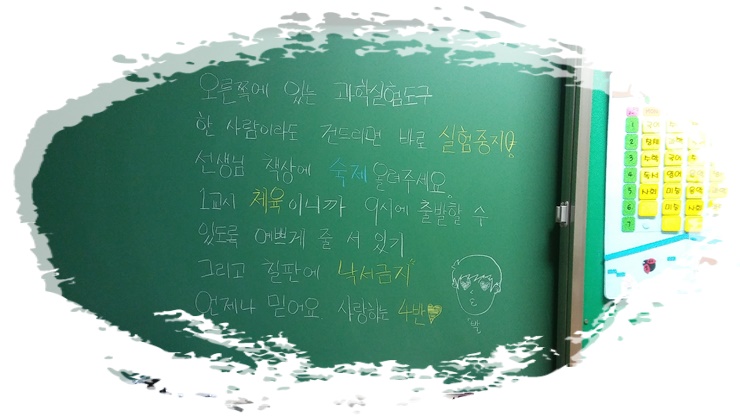 오른쪽에 있는 과학실험도구
한 사람이라도 건드리면 바로 실험중지!
선생님 책상에 숙제 올려주세요.
1교시 체육이니까 9시에 출발할 수
있도록 예쁘게 줄 서 있기
그리고 칠판에 "낙서금지"
언제나 믿어요. 사랑하는 4반♥
1 국어
2
3 수학 국어
4 독서 영어
5 사회 미술 음악
6 미술 사회
7